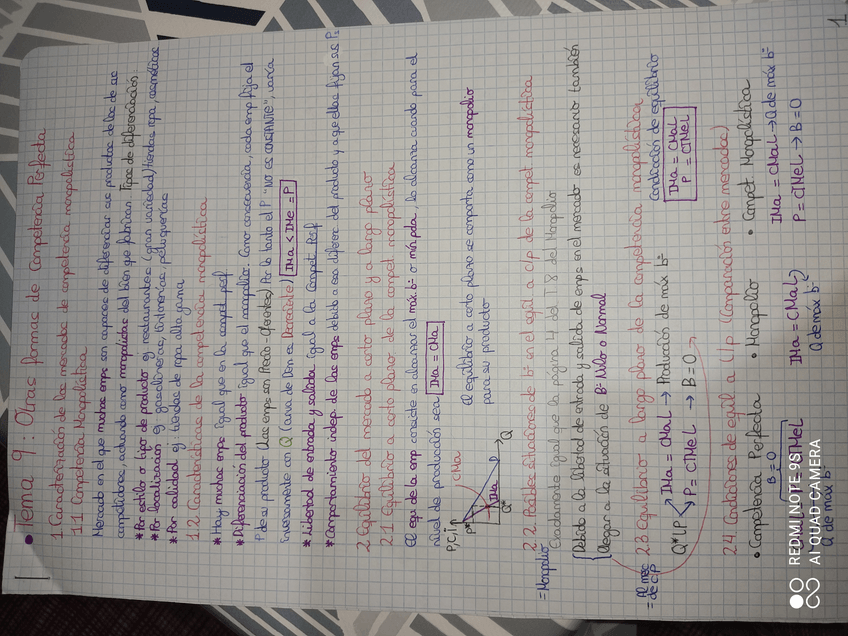 • Tema 9: Otras formas de Competencia Perfecta
1 Caracterización de los mercados de competencia monopolística
1.1 Competencia Monopolística
Mercado en el que muchas emps son capaces de diferenciar sus productos de los de sus
competidores, actuando como monopolistas del bien que fabrican. Tipos de diferenciación
* Por estilo o tipo de producto ej restaurantes (gran variedad) tiendas ropa, cosméticos
* Por localización ej gasolineras, tintorerías, peluquerías
* Por calidad ej: tiendas de ropa alta gama
1.2 Características de la competencia monopolística
* Hay muchas emps igual que en la compet perf
* Diferenciación del producto igual que el monopolio. Como consecuencia, cada emp fija el
P de su producto (Las emps son Precio-Oferentes) Por lo tanto el P "NO ES CONSTANTE", varía
inversamente con Q (Curva de Dem es Decreciente) IMa < IMe = P
* Libertad de entrada y salida igual a la Compet Perf
* Comportamiento indep. de las emps debido a esa diferen del producto y a que ellas fijan sus Ps
2 Equilibrio del mercado a corto plazo y a largo plazo
2.1 Equilibrio a corto plazo de la compet monopolística
El equi de la emp consiste en alcanzar el máx. b= o mín pda, lo alcanza cuando para el
nivel de producción sea IMa = CMa
P, C, I
CMa
P*
IMa
D
Q*
Q
El equilibrio a corto plazo se comporta como un monopolio
para su producto
2.2 Posibles situaciones de b= en el equil a c/p de la compet monopolística
= Monopolio
Exactamente igual que la página 4 del T 8 del Monopolio
Debido a la libertad de entrada y salida de emps en el mercado es necesario también
llegar a la situación de B= Nulo o Normal
2.3 Equilibrio a largo plazo de la competencia monopolística
= Al mec de c/p
Q* LP
IMa = CMaL → Producción de máx b=
P = CTMeL → B = 0
Condición de equilibrio
IMa = CMaL
P = CTMeL
2.4 Condiciones de equil a L/p (Comparación entre mercados)
• Competencia Perfecta
• Monopolio
• Compet. Monopolística
B = 0
Q de máx b=
IMa = CMaL
Q de máx b=
IMa = CMaL → Q de máx b=
P = CTMeL → B = 0
1
REDMI NOTE 9S
AI QUAD CAMERA